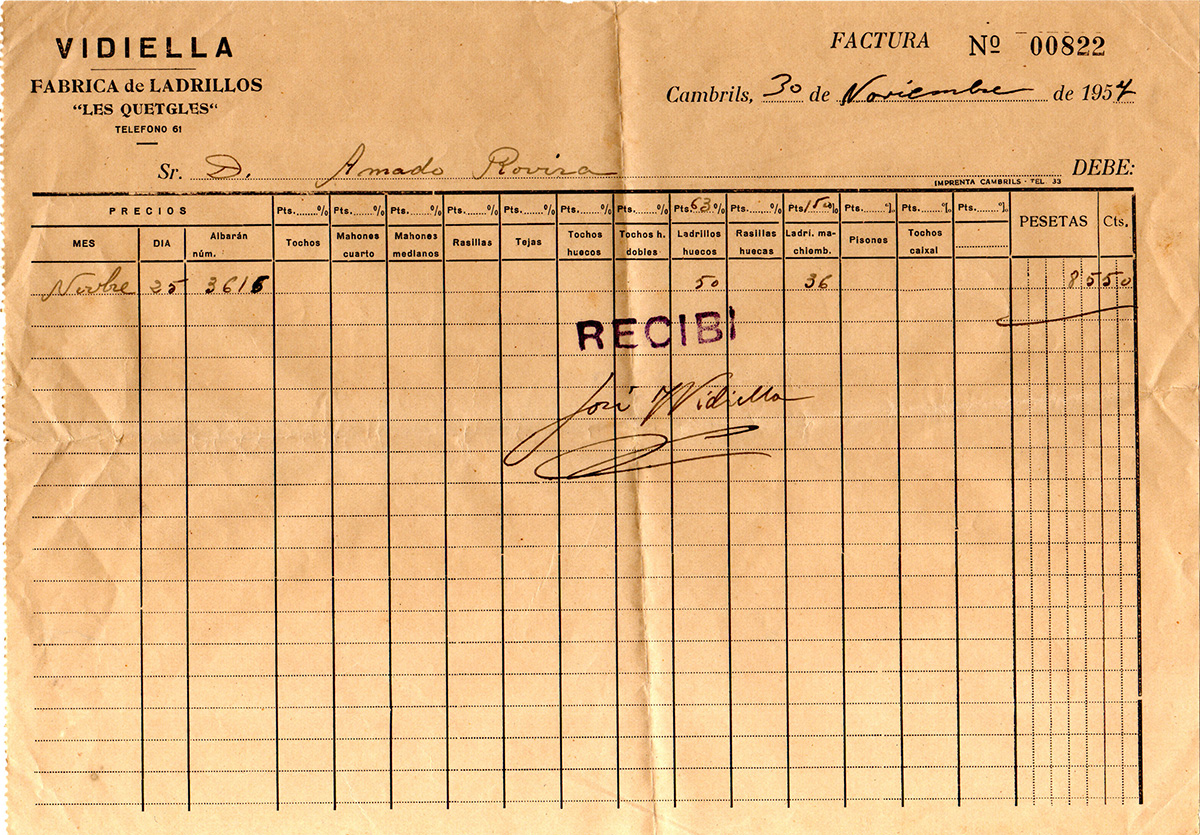 VIDIELLA
FABRICA de LADRILLOS
"LES QUETGLES"
TELEFONO 61
FACTURA Nº 00822
Cambrils, 30 de Noviembre de 1954
Sr. D. Amado Rovira DEBE:
IMPRENTA CAMBRILS - TEL. 33
PRECIOS Pts.......% Pts.......% Pts.......% Pts.......% Pts.......% Pts.......% Pts.......% Pts. 63 % Pts.......% Pts. 150 % Pts.......% Pts.......% Pts.......% PESETAS Cts.
MES DIA Albarán núm. Tochos Mahones cuarto Mahones medianos Rasillas Tejas Tochos huecos Tochos h. dobles Ladrillos huecos Rasillas huecas Ladri. ma- chiemb. Pisones Tochos caixal
Novbre 25 3616 50 36 85 50
RECIBÍ
José Vidiella